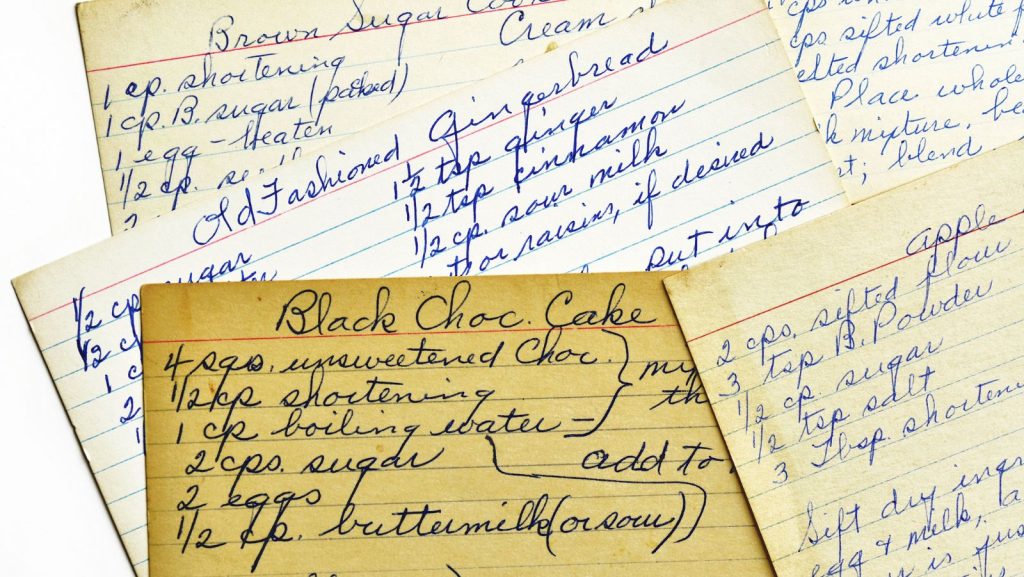 Brown Sugar
Cream
1 cp. shortening
1 cp. B. sugar (packed)
1 egg - beaten
1/2 cp.
cps sifted white
shortening
Place whole
mixture,
blend
Old Fashioned Gingerbread
1 1/2 tsp ginger
1/2 tsp cinnamon
1/2 cp. sour milk
or raisins, if desired
put in to
1/2 cp sugar
1/2 c
1 c
2
Black Choc. Cake
4 sqs. unsweetened Choc.
1/2 cp shortening
1 cp boiling water -
2 cps. sugar
add to
2 eggs
1/2 cp. buttermilk (or sour)
apple
2 cps. sifted flour
3 tsp B. Powder
1/2 cp sugar
1/2 tsp salt
3 Tbsp. shorten
Sift dry ingr
egg & milk,
is jus